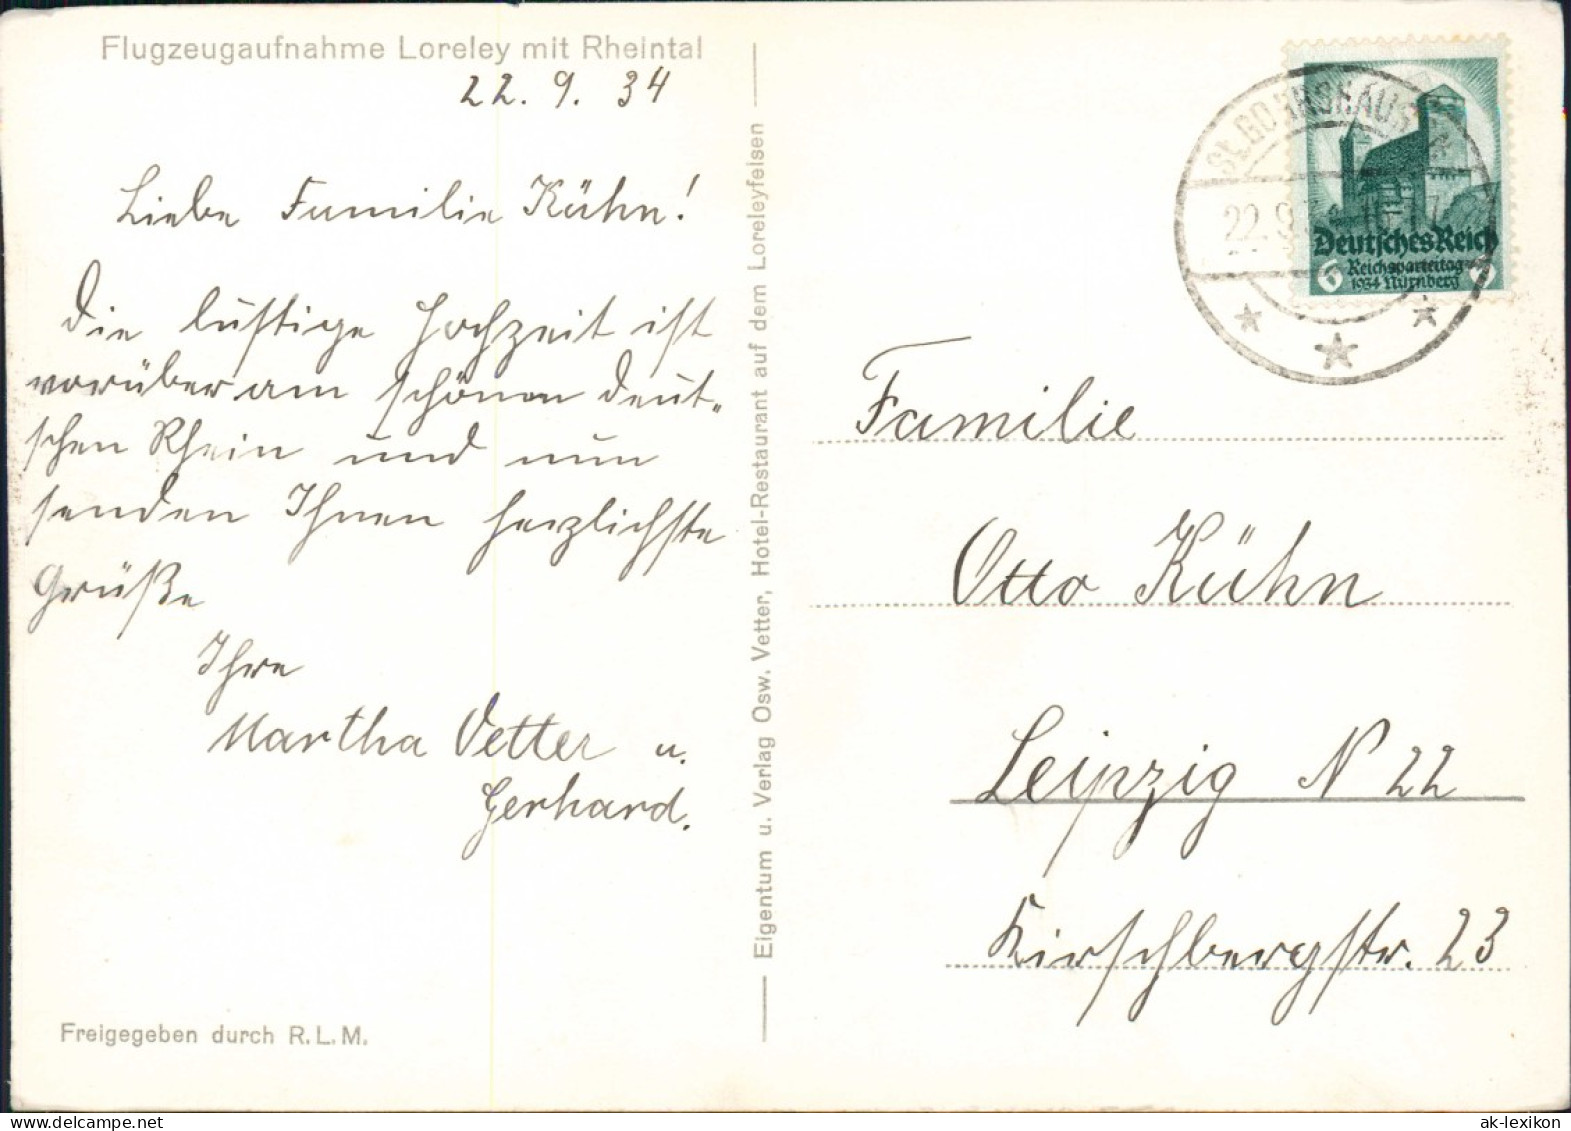 Flugzeugaufnahme Loreley mit Rheintal
22. 9. 34
Liebe Familie Kühn!
Die lustige Hochzeit ist
vorüber am schönen deut-
schen Rhein und nun
senden Ihnen herzlichste
Grüße
Ihre
Martha Vetter u.
Gerhard.
Freigegeben durch R.L.M.
Eigentum u. Verlag Osw. Vetter, Hotel-Restaurant auf dem Loreleyfelsen
St. GOARSHAUSEN
22.9.34 16-17
Deutsches Reich
6 Reichsparteitag
1934 Nürnberg
Familie
Otto Kühn
Leipzig N 22
Kirschbergstr. 23
ak-lexikon